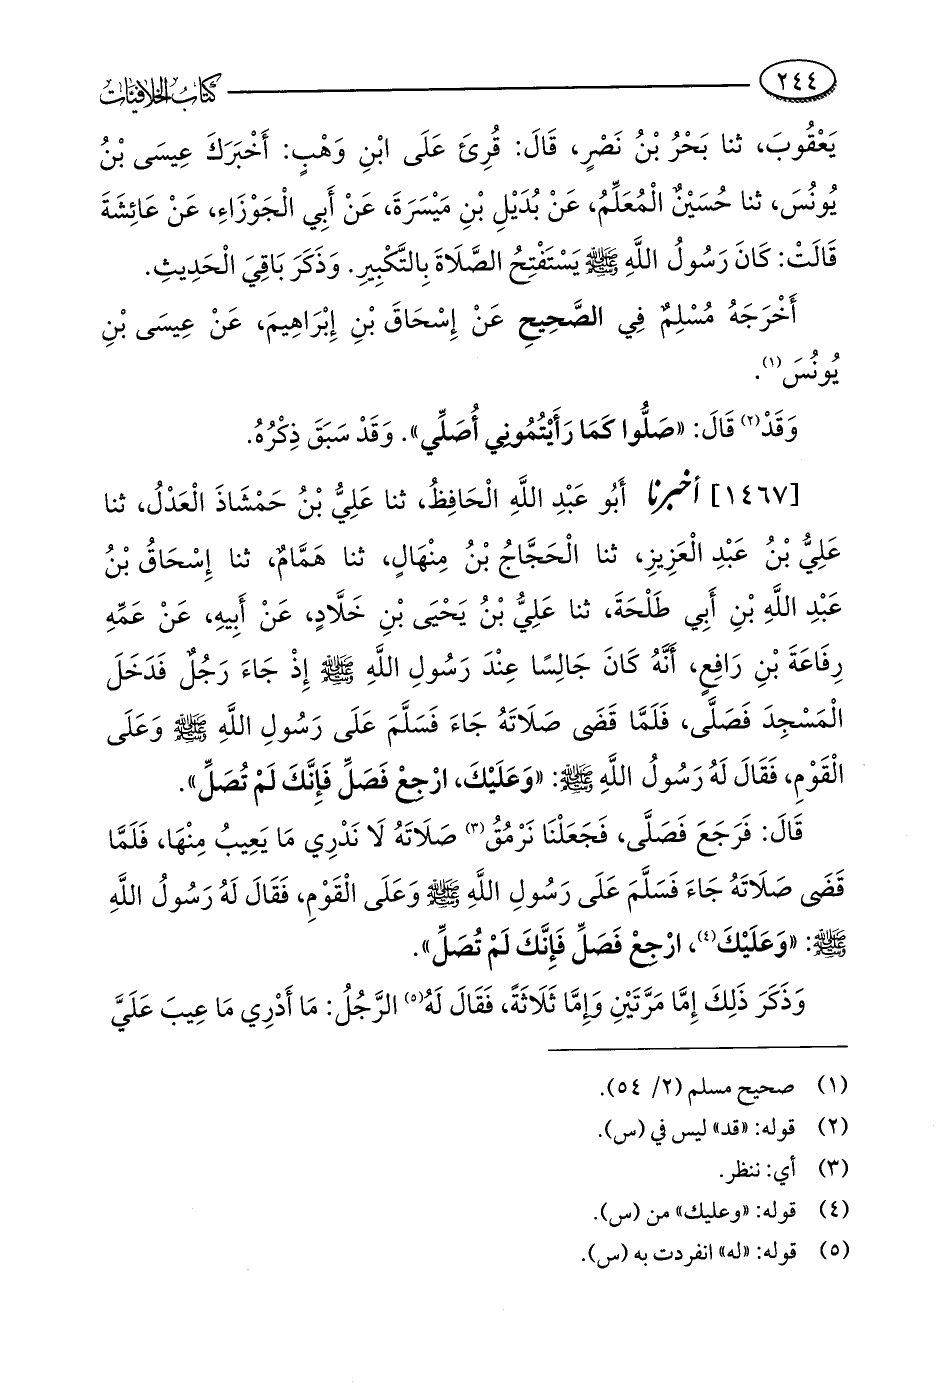 ٢٤٤ كتاب الخلافيات
يَعْقُوبَ، ثنا بَحْرُ بْنُ نَصْرٍ، قَالَ: قُرِئَ عَلَى ابْنِ وَهْبٍ: أَخْبَرَكَ عِيسَى بْنُ
يُونُسَ، ثنا حُسَيْنٌ الْمُعَلِّمُ، عَنْ بُدَيْلِ بْنِ مَيْسَرَةَ، عَنْ أَبِي الْجَوْزَاءِ، عَنْ عَائِشَةَ
قَالَتْ: كَانَ رَسُولُ اللَّهِ ﷺ يَسْتَفْتِحُ الصَّلَاةَ بِالتَّكْبِيرِ. وَذَكَرَ بَاقِيَ الْحَدِيثِ.
أَخْرَجَهُ مُسْلِمٌ فِي الصَّحِيحِ عَنْ إِسْحَاقَ بْنِ إِبْرَاهِيمَ، عَنْ عِيسَى بْنِ
يُونُسَ(١).
وَقَدْ(٢) قَالَ: «صَلُّوا كَمَا رَأَيْتُمُونِي أُصَلِّي». وَقَدْ سَبَقَ ذِكْرُهُ.
[١٤٦٧] أخبرنا أَبُو عَبْدِ اللَّهِ الْحَافِظُ، ثنا عَلِيُّ بْنُ حَمْشَاذَ الْعَدْلُ، ثنا
عَلِيُّ بْنُ عَبْدِ الْعَزِيزِ، ثنا الْحَجَّاجُ بْنُ مِنْهَالٍ، ثنا هَمَّامٌ، ثنا إِسْحَاقُ بْنُ
عَبْدِ اللَّهِ بْنِ أَبِي طَلْحَةَ، ثنا عَلِيُّ بْنُ يَحْيَى بْنِ خَلَّادٍ، عَنْ أَبِيهِ، عَنْ عَمِّهِ
رِفَاعَةَ بْنِ رَافِعٍ، أَنَّهُ كَانَ جَالِسًا عِنْدَ رَسُولِ اللَّهِ ﷺ إِذْ جَاءَ رَجُلٌ فَدَخَلَ
الْمَسْجِدَ فَصَلَّى، فَلَمَّا قَضَى صَلَاتَهُ جَاءَ فَسَلَّمَ عَلَى رَسُولِ اللَّهِ ﷺ وَعَلَى
الْقَوْمِ، فَقَالَ لَهُ رَسُولُ اللَّهِ ﷺ: «وَعَلَيْكَ، ارْجِعْ فَصَلِّ فَإِنَّكَ لَمْ تُصَلِّ».
قَالَ: فَرَجَعَ فَصَلَّى، فَجَعَلْنَا نَرْمُقُ(٣) صَلَاتَهُ لَا نَدْرِي مَا يَعِيبُ مِنْهَا، فَلَمَّا
قَضَى صَلَاتَهُ جَاءَ فَسَلَّمَ عَلَى رَسُولِ اللَّهِ ﷺ وَعَلَى الْقَوْمِ، فَقَالَ لَهُ رَسُولُ اللَّهِ
ﷺ: «وَعَلَيْكَ(٤)، ارْجِعْ فَصَلِّ فَإِنَّكَ لَمْ تُصَلِّ».
وَذَكَرَ ذَلِكَ إِمَّا مَرَّتَيْنِ وَإِمَّا ثَلَاثَةً، فَقَالَ لَهُ(٥) الرَّجُلُ: مَا أَدْرِي مَا عِيبَ عَلَيَّ
(١) صحيح مسلم (٢/ ٥٤).
(٢) قوله: «قد» ليس في (س).
(٣) أي: ننظر.
(٤) قوله: «وعليك» من (س).
(٥) قوله: «له» انفردت به (س).